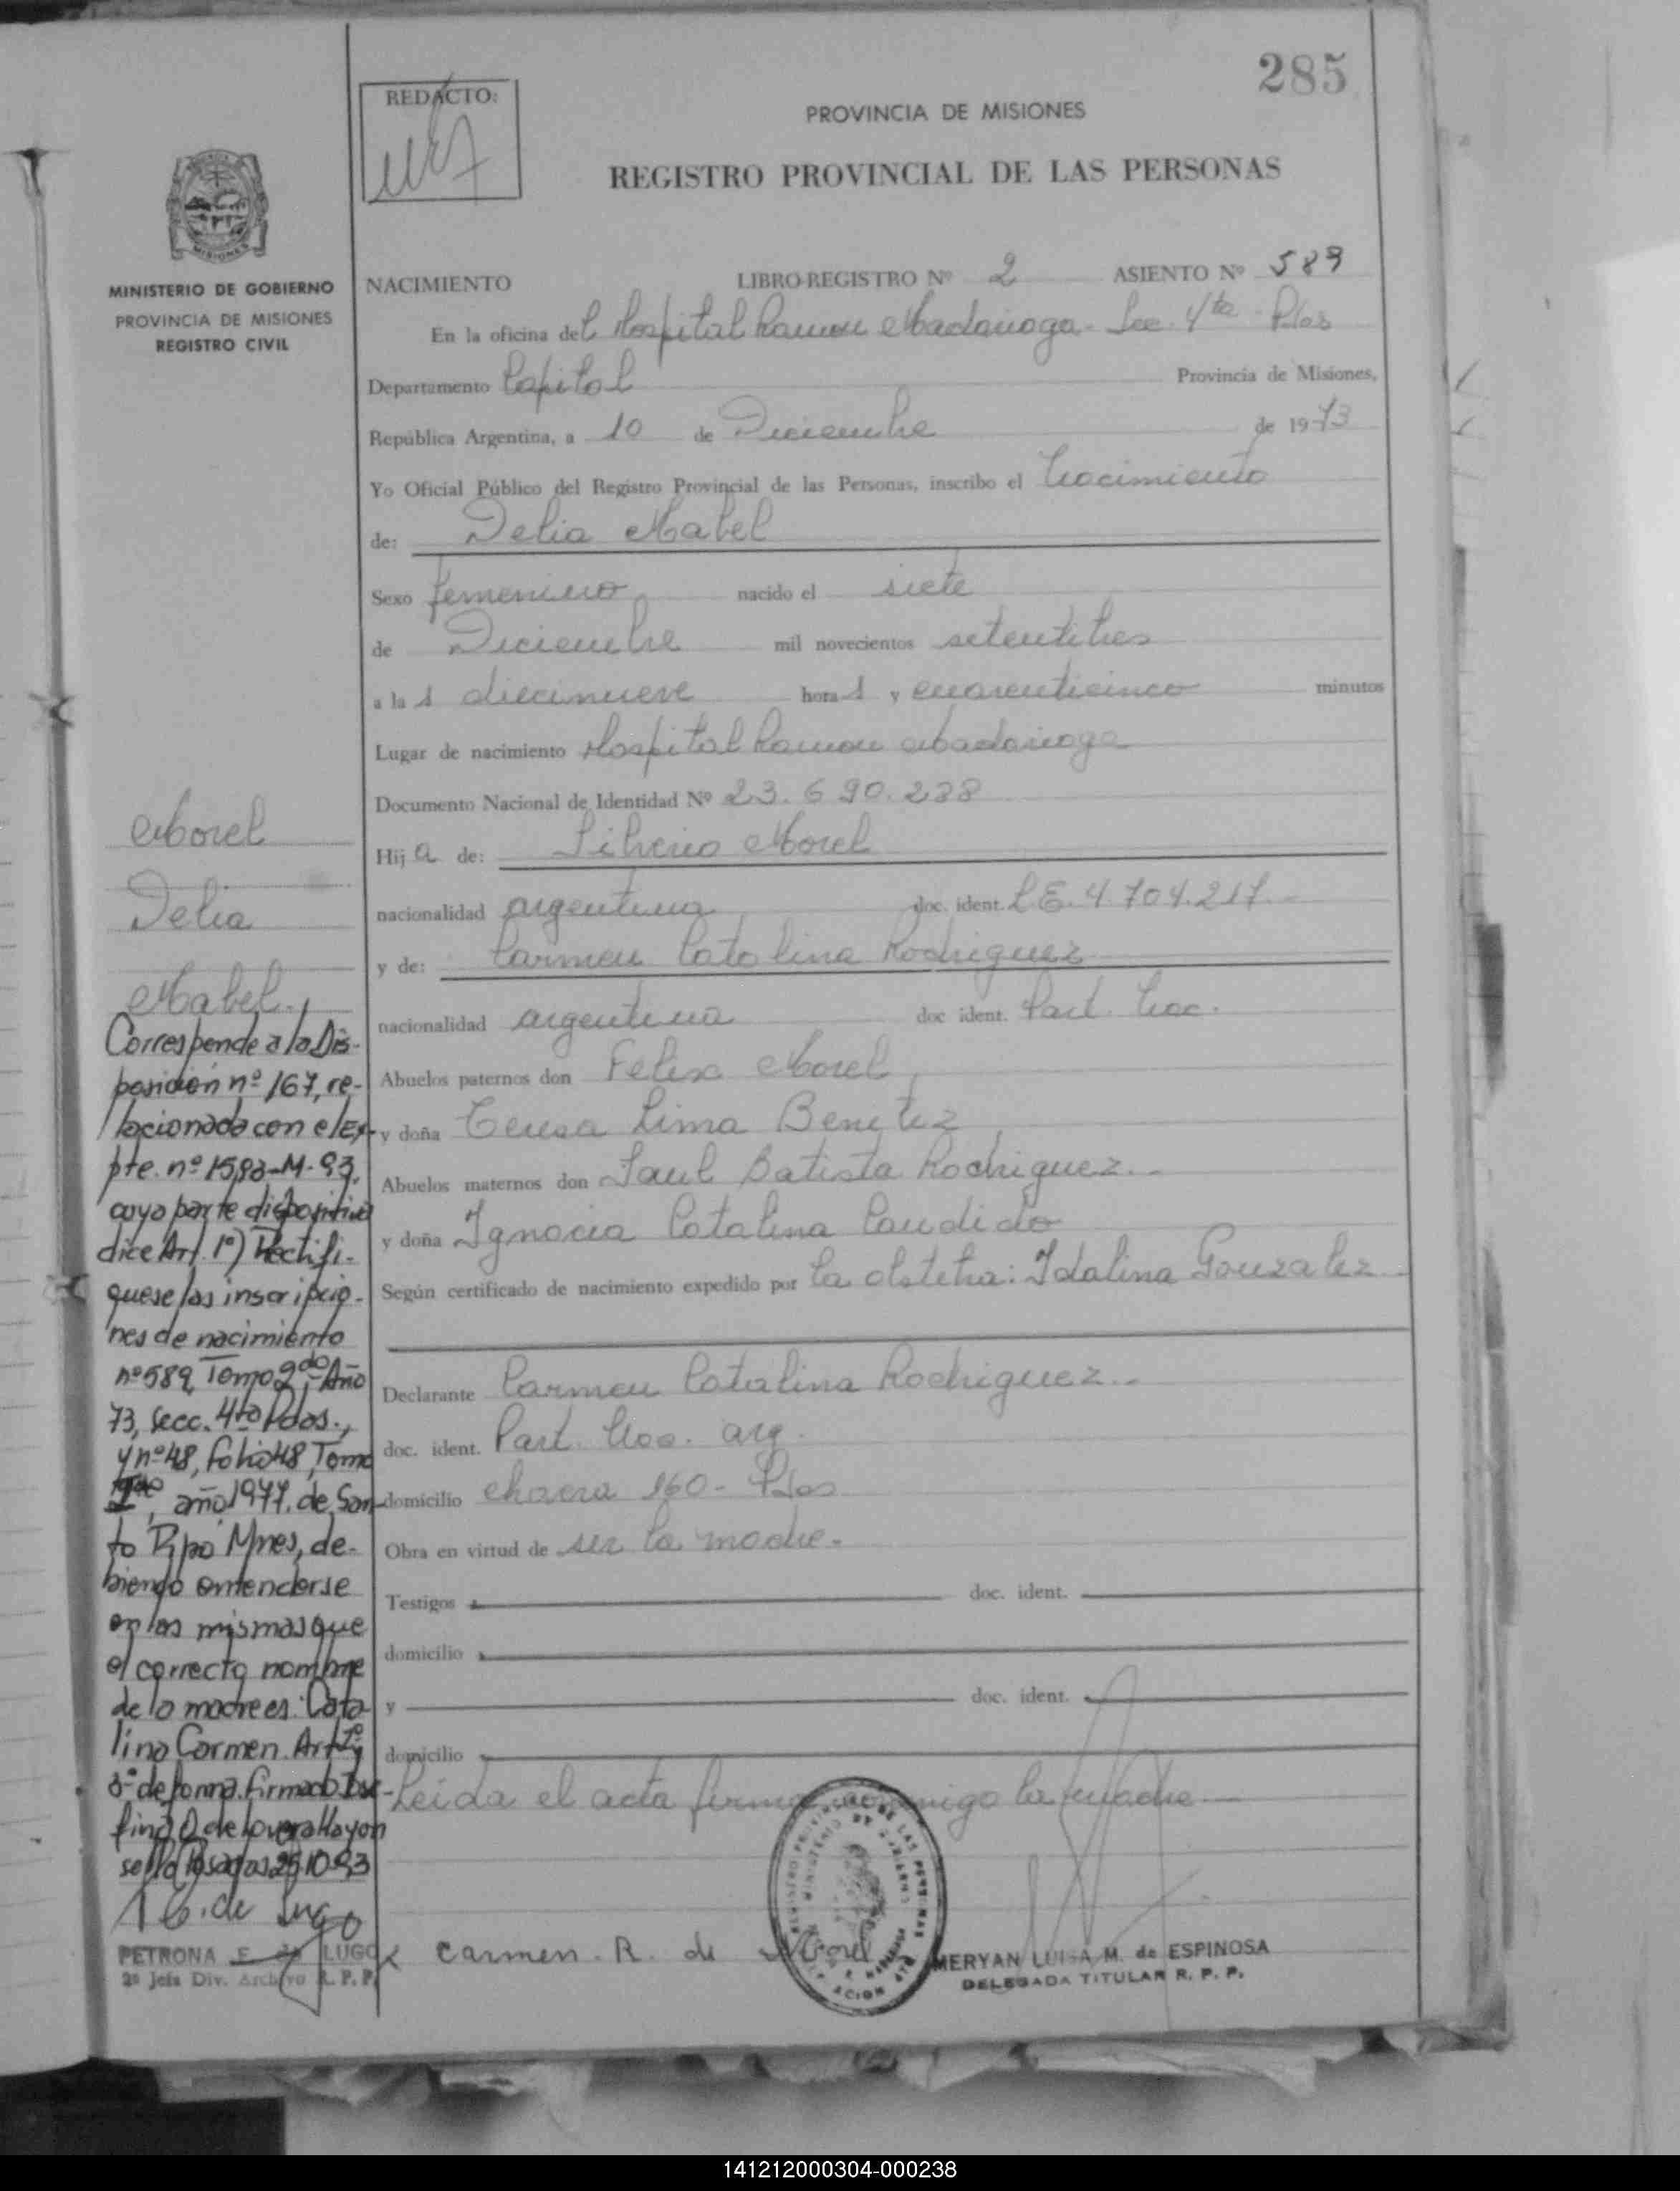 285
REDACTO:
PROVINCIA DE MISIONES
REGISTRO PROVINCIAL DE LAS PERSONAS
MISIONES
MINISTERIO DE GOBIERNO
PROVINCIA DE MISIONES
REGISTRO CIVIL
NACIMIENTO LIBRO-REGISTRO Nº 2 ASIENTO Nº 589
En la oficina del Hospital Ramon Madariaga - Sec. 4ta Pdas
Departamento Capital Provincia de Misiones,
República Argentina, a 10 de Diciembre de 1973
Yo Oficial Público del Registro Provincial de las Personas, inscribo el Nacimiento
de: Delia Mabel
Sexo femenino nacido el siete
de Diciembre mil novecientos setentitres
a las diecinueve horas y cuarenticinco minutos
Lugar de nacimiento Hospital Ramon Madariaga
Documento Nacional de Identidad Nº 23.690.238
Hija de: Silverio Morel
nacionalidad argentina doc. ident. L.E. 4.704.217.-
y de: Carmen Catalina Rodriguez
nacionalidad argentina doc ident. Part. Nac.
Abuelos paternos don Felix Morel
y doña Teresa Lima Benitez
Abuelos maternos don Saul Batista Rodriguez.-
y doña Ignacia Catalina Candido
Según certificado de nacimiento expedido por la obstetra: Idalina Gonzalez
Declarante Carmen Catalina Rodriguez.-
doc. ident. Part. Nac. arg.
domicilio chacra 160 - Pdas
Obra en virtud de ser la madre.-
Testigos doc. ident.
domicilio
y doc. ident.
domicilio
Leida el acta firma conmigo la madre
Carmen. R. de Morel
MERYAN LUISA M. de ESPINOSA
DELEGADA TITULAR R. P. P.
Morel
Delia
Mabel.
Corresponde a la Dis-
posición nº 167, re-
lacionada con el Ex-
pte. nº 1593-M-93,
cuya parte dispositiva
dice Art. 1º) Rectifi-
quese las inscripcio-
nes de nacimiento
nº 589, Tomo 2do Año
73, secc. 4ta Pdas.,
y nº 48, folio 48, Tomo
año 1977, de San-
to Pipó Mnes, de-
biendo entenderse
en las mismas que
el correcto nombre
de la madre es: Cata
lina Carmen. Art 2º y
3º de forma. firmado Jose-
fina O de Lovera Hay un
sello Posadas 25-10-93
PETRONA E. de LUGO
2ª Jefa Div. Archivo R. P. P.
141212000304-000238